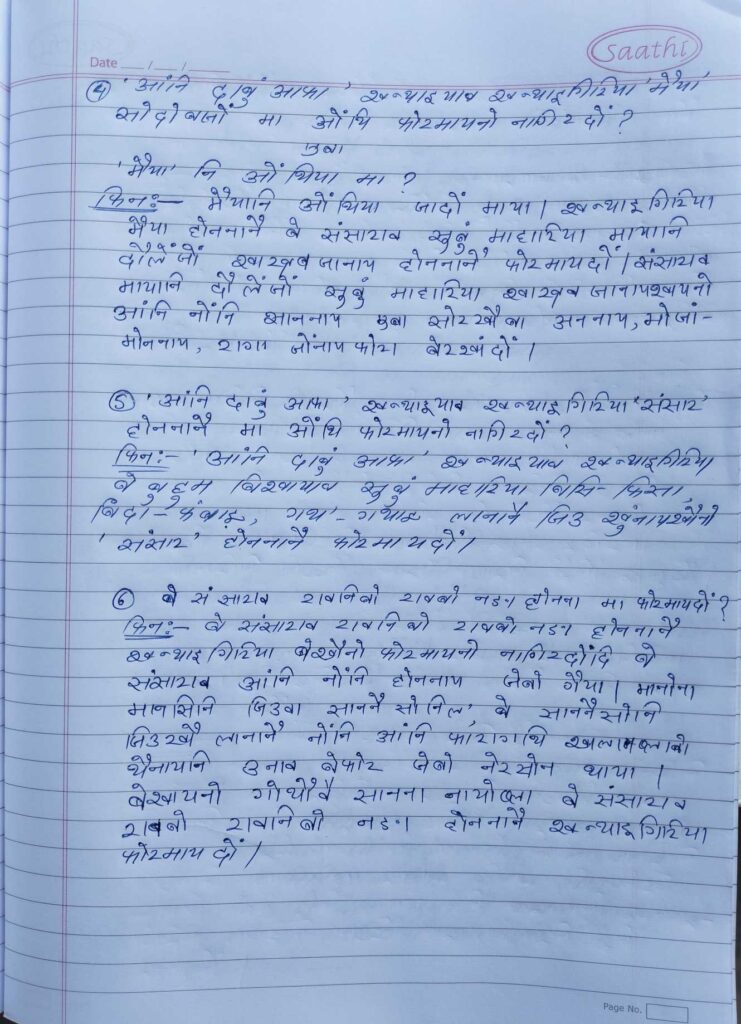 Saathi
Date __/__/__
④ 'आंनि दाबुं आफा' खन्थाइयाव खन्थाइगिरिया 'मैया'
सोदोबजों मा ओंथि फोरमायनो नागिरदों?
एबा
'मैया' नि ओंथिया मा?
फिन:- मैयानि ओंथिया जादों माया। खन्थाइगिरिया
मैया होननानै बे संसाराव सुबुं माहारिया मायानि
दौलेंजों खाखुब जानाय होननानै फोरमायदों। संसाराव
मायानि दौलेंजों सुबुं माहारिया खाखुब जानायखायनो
आंनि नोंनि साननाय एबा सोरखौबा अननाय, मोजां-
मोननाय, रागा जोंनाय फोरा बेरखांदों।
⑤ 'आंनि दाबुं आफा' खन्थाइयाव खन्थाइगिरिया 'संसार'
होननानै मा ओंथि फोरमायनो नागिरदों?
फिन:- 'आंनि दाबुं आफा' खन्थाइयाव खन्थाइगिरिया
बे बुहुम बिखायाव सुबुं माहारिया बिसि-फिसा,
बिदा-फंबाइ, गथ'-गथाइ लानानै जिउ खुंनायखौनो
'संसार' होननानै फोरमायदों।
⑥ बे संसाराव रावनिबो रावबो नङा होनना मा फोरमायदों?
फिन:- बे संसाराव रावनिबो रावबो नङा होननानै
खन्थाइगिरिया बेखौनो फोरमायनो नागिरदोंदि बे
संसाराव आंनि नोंनि होननाय जेबो गैया। मानोना
मानसिनि जिउवा साननैसोनिल', बे साननैसोनि
जिउखौ लानानै नोंनि आंनि फारागथि खालामब्लाबो
थैनायनि उनाव बेफोर जेबो नेरसोन थाया।
बेखायनो गोथौयै सानना नायोब्ला बे संसाराव
रावबो रावनिबो नङा होननानै खन्थाइगिरिया
फोरमायदों।
Page No.